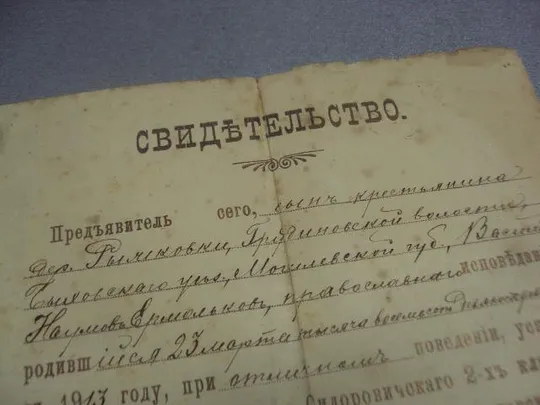 СВИДѢТЕЛЬСТВО.
Предъявитель сего, сынъ крестьянина
дер. Рыжковки, Грудиновской волости,
Быховскаго уѣз., Могилевской губ., Васил
Наумовъ Ермольковъ, православнаго исповѣдан
родившійся 23 марта тысяча восемьсотъ
1913 году, при отличномъ поведеніи,
Сидоровичскаго 2-хъ кл